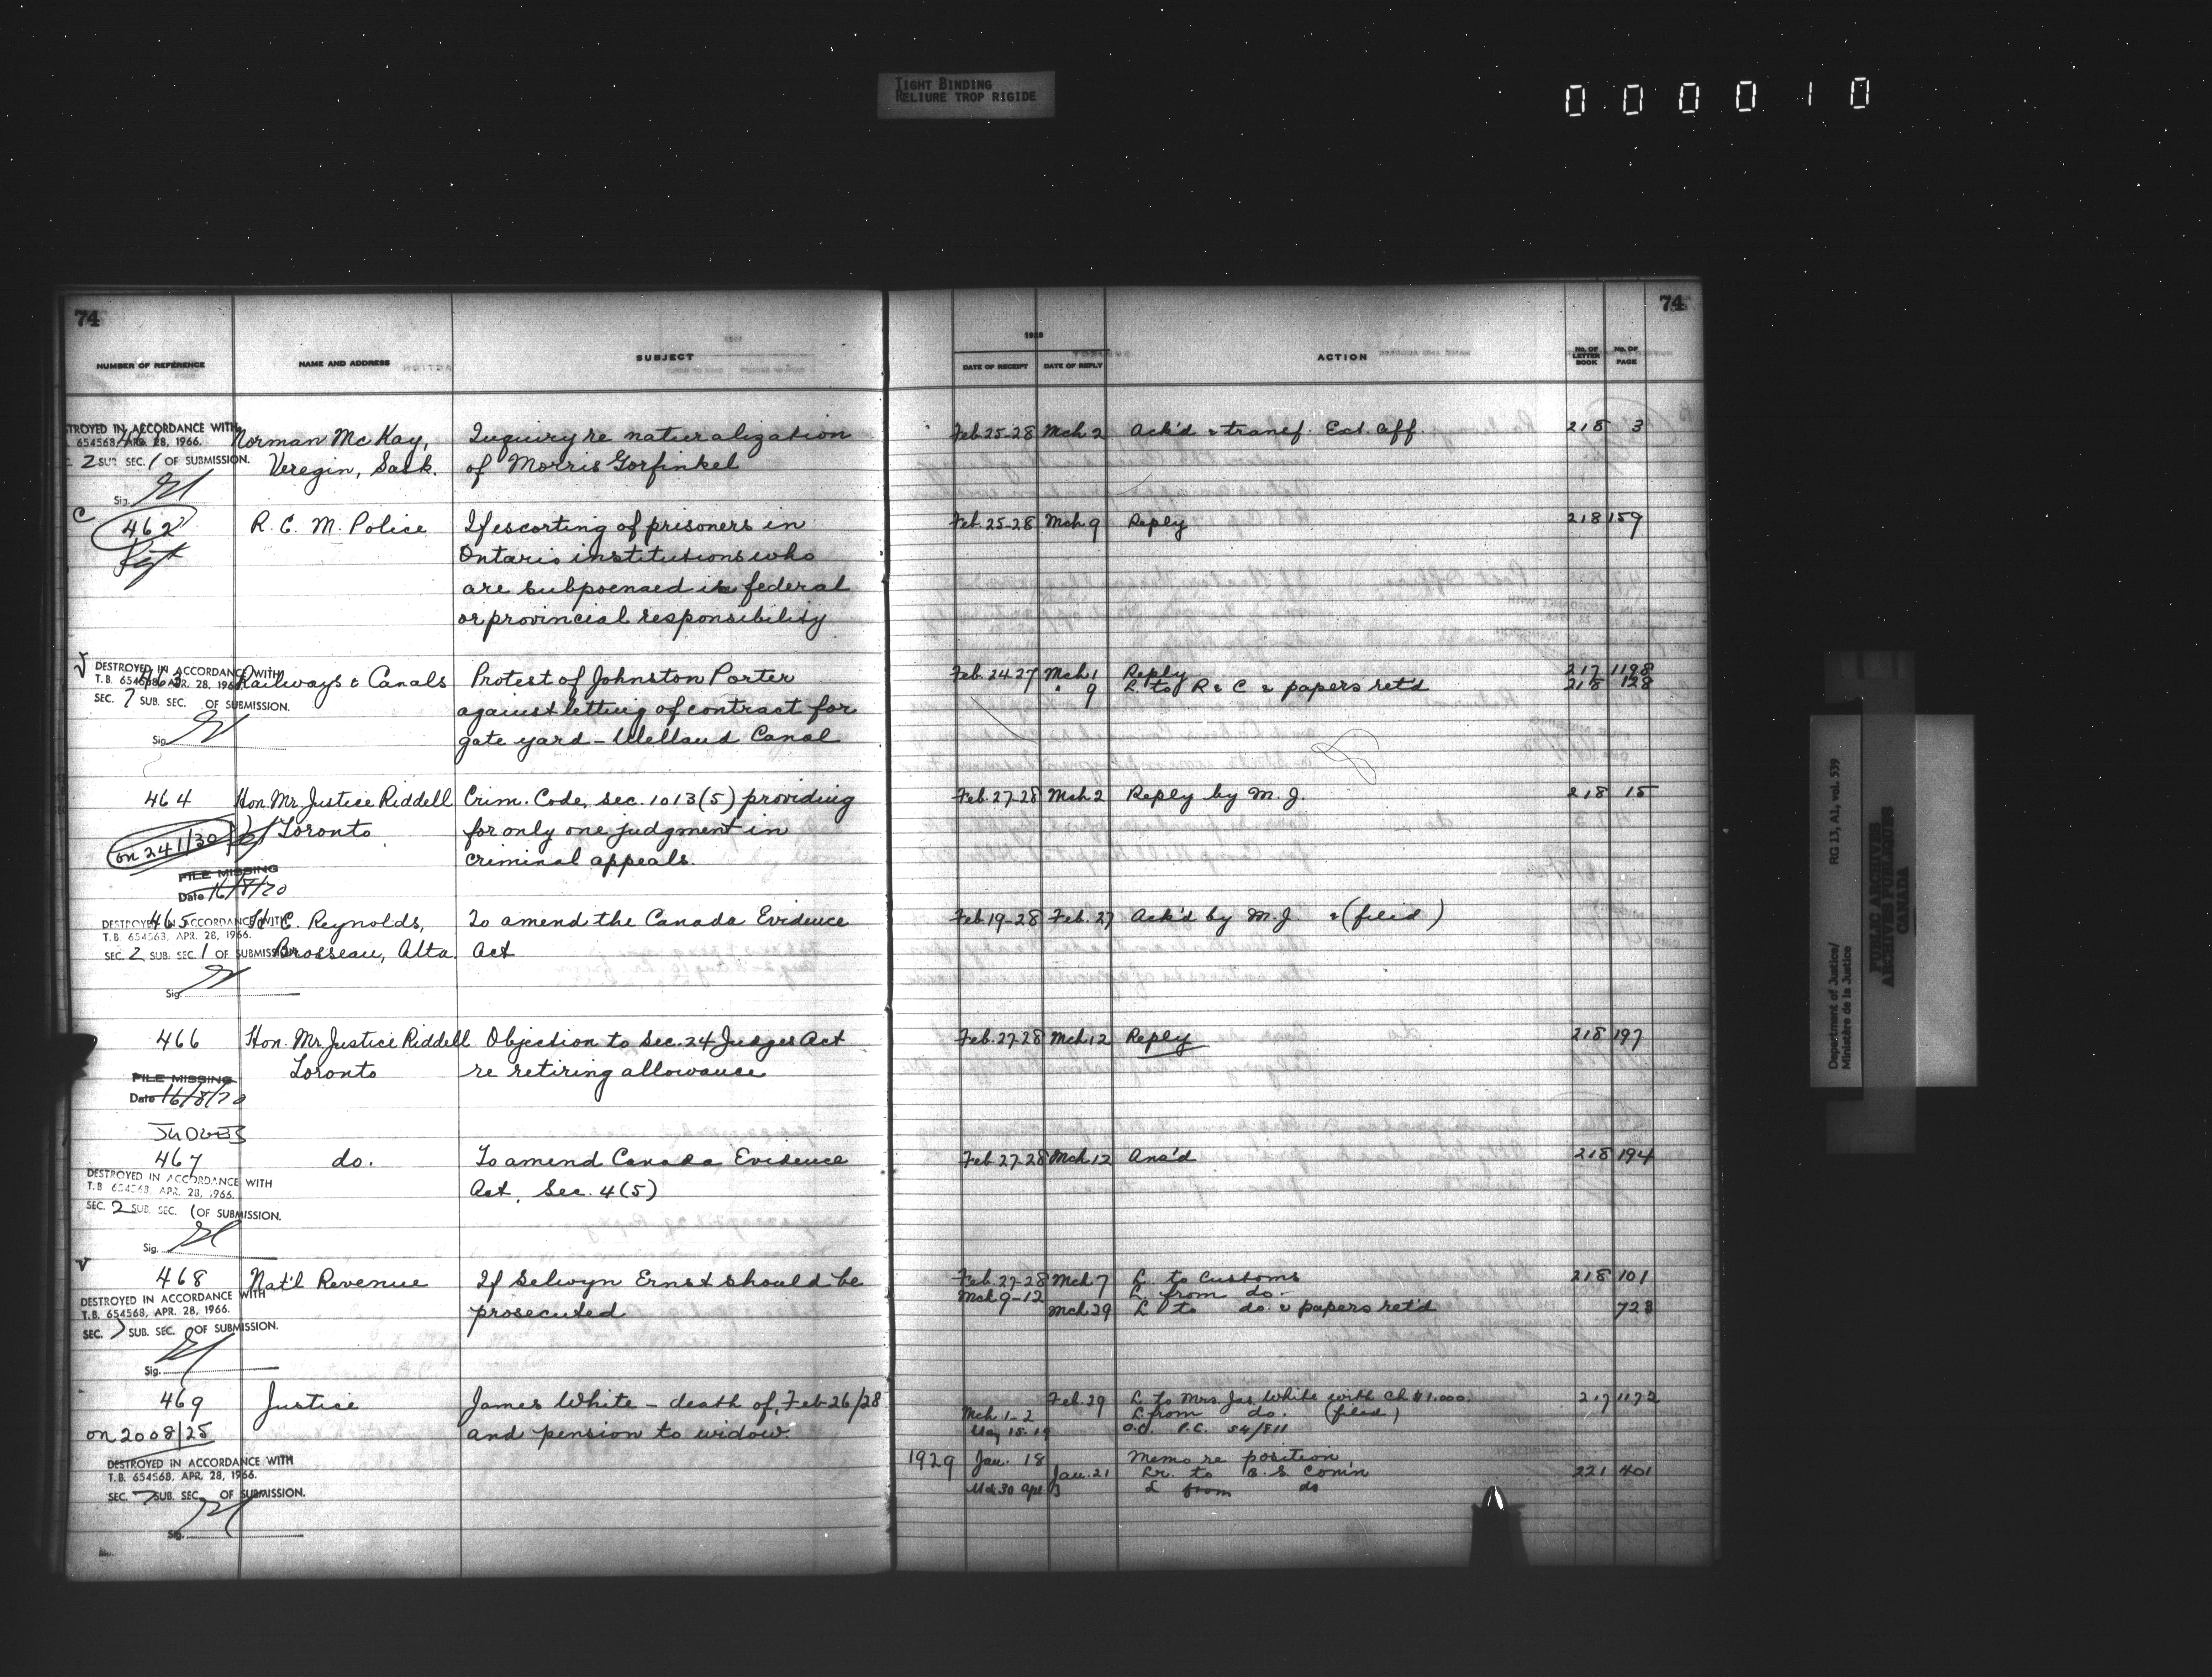 TIGHT BINDING
RELIURE TROP RIGIDE
000010
74
NUMBER OF REFERENCE NAME AND ADDRESS SUBJECT
1928
DATE OF RECEIPT DATE OF REPLY ACTION No. OF LETTER BOOK No. OF PAGE
74
TROYED IN ACCORDANCE WITH
654568, APR. 28, 1966.
2 SUB SEC. 1 OF SUBMISSION.
Sig.
Norman McKay,
Veregin, Sask.
Inquiry re naturalization
of Morris Gorfinkel
Feb. 25-28 Mch 2 Ack'd & transf. Ext. Aff. 218 3
C
462
R. C. M. Police
If escorting of prisoners in
Ontario institutions who
are subpoenaed is federal
or provincial responsibility
Feb. 25-28 Mch 9 Reply 218 159
DESTROYED IN ACCORDANCE WITH
T.B. 654568, APR. 28, 1966.
SEC. 7 SUB. SEC. OF SUBMISSION.
Sig.
463
Railways & Canals
Protest of Johnston Porter
against letting of contract for
gate yard - Welland Canal
Feb. 24-27 Mch 1 Reply 217 1198
" 9 L to R & C & papers ret'd 218 128
464
on 241/30
FILE MISSING
Date 16/8/70
Hon. Mr. Justice Riddell
Toronto
Crim. Code, sec. 1013(5) providing
for only one judgment in
criminal appeals.
Feb. 27-28 Mch 2 Reply by M. J. 218 15
465
DESTROYED IN ACCORDANCE WITH
T.B. 654568, APR. 28, 1966.
SEC. 2 SUB. SEC. 1 OF SUBMISSION
Sig.
E. Reynolds,
Brosseau, Alta.
To amend the Canada Evidence
Act
Feb. 19-28 Feb. 27 Ack'd by M. J. & (filed)
466
FILE MISSING
Date 16/8/70
Hon. Mr. Justice Riddell
Toronto
Objection to Sec. 24 Judges Act
re retiring allowance
Feb. 27-28 Mch 12 Reply 218 197
467
DESTROYED IN ACCORDANCE WITH
T.B. 654568, APR. 28, 1966.
SEC. 2 SUB. SEC. 1 OF SUBMISSION.
Sig.
do.
To amend Canada Evidence
Act, Sec. 4(5)
Feb. 27-28 Mch 12 Ans'd 218 194
468
DESTROYED IN ACCORDANCE WITH
T.B. 654568, APR. 28, 1966.
SEC. 7 SUB. SEC. OF SUBMISSION.
Sig.
Nat'l Revenue
If Selwyn Ernst should be
prosecuted
Feb. 27-28 Mch 7 L. to Customs 218 101
Mch 9-12 L. from do.
Mch 29 L to do. & papers ret'd 723
469
on 2008/25
DESTROYED IN ACCORDANCE WITH
T.B. 654568, APR. 28, 1966.
SEC. 7 SUB. SEC. OF SUBMISSION.
Sig.
Justice
James White - death of, Feb 26/28
and pension to widow.
Feb. 29 L. to Mrs. Jas. White with ch. $1.000. 217 1172
Mch 1-2 L from do. (filed)
May 15-19 P.C. 54/811
1929 Jan. 18 Memo re position
Jan. 21 Lr. to C. S. Com'n 221 401
Mch 30 Apl 3 L from do
Department of Justice/
Ministère de la Justice
RG 13, A2, vol. 539
PUBLIC ARCHIVES
ARCHIVES PUBLIQUES
CANADA